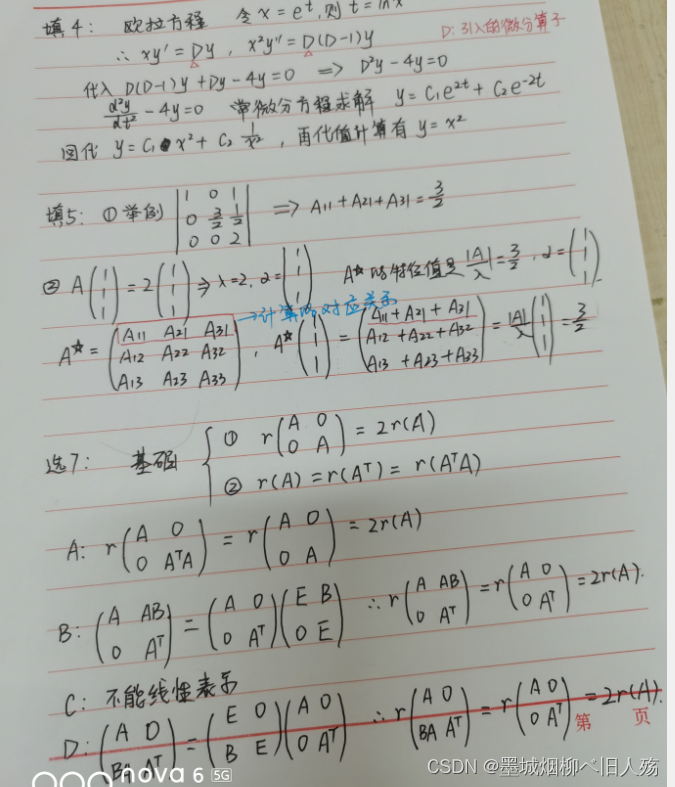 填4: 欧拉方程 令x=e^t,则 t=lnx
∴ xy'=Dy, x²y''=D(D-1)y D:引入的微分算子
代入 D(D-1)y+Dy-4y=0 => D²y-4y=0
d²y/dt² -4y=0 常微分方程求解 y=C₁e^{2t}+C₂e^{-2t}
回代 y=C₁x²+C₂ 1/x², 再代值计算有 y=x²
填5: ①举例 |1 0 1; 0 3/2 1/2; 0 0 2| => A11+A21+A31=3/2
② A(1 1 1)=2(1 1 1) => λ=2, α=(1 1 1) A*的特征值是|A|/λ=3/2, α=(1 1 1)
→计算的对应关系
A*=(A11 A21 A31; A12 A22 A32; A13 A23 A33), A*(1 1 1)=(A11+A21+A31; A12+A22+A32; A13+A23+A33)=|A|/λ(1 1 1)=3/2
选7: 基础 { ① r(A 0; 0 A)=2r(A)
② r(A)=r(Aᵀ)=r(AᵀA)
A: r(A 0; 0 AᵀA)=r(A 0; 0 A)=2r(A)
B: (A AB; 0 Aᵀ)=(A 0; 0 Aᵀ)(E B; 0 E) ∴r(A AB; 0 Aᵀ)=r(A 0; 0 Aᵀ)=2r(A).
C: 不能线性表示
D: (A 0; BA Aᵀ)=(E 0; B E)(A 0; 0 Aᵀ) ∴r(A 0; BA Aᵀ)=r(A 0; 0 Aᵀ)=2r(A).
第 页
nova 6 5G
CSDN @墨城烟柳ベ旧人殇